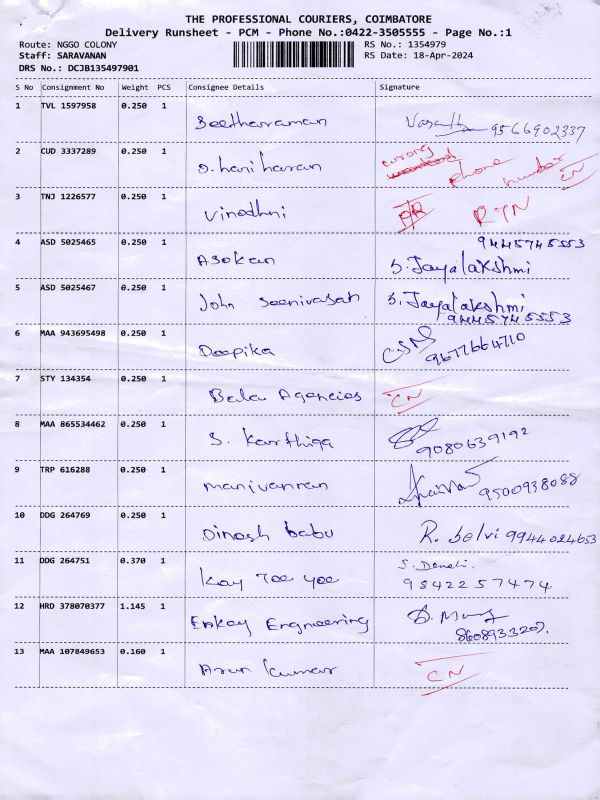 THE PROFESSIONAL COURIERS, COIMBATORE
Delivery Runsheet - PCM - Phone No.:0422-3505555 - Page No.:1
Route: NGGO COLONY RS No.: 1354979
Staff: SARAVANAN RS Date: 18-Apr-2024
DRS No.: DCJB135497901
S No Consignment No Weight PCS Consignee Details Signature
1 TVL 1597958 0.250 1 Seetharaman 9566902337
2 CUD 3337289 0.250 1 S. hari haran wrong phone number CN
3 TNJ 1226577 0.250 1 Vinodhni RTN
4 ASD 5025465 0.250 1 Asokan 9445745553
S. Jayalakshmi
5 ASD 5025467 0.250 1 John Seenivasan S. Jayalakshmi
9445745553
6 MAA 943695498 0.250 1 Deepika 9677664710
7 STY 134354 0.250 1 Bala Agencies CN
8 MAA 865534462 0.250 1 S. Karthiga 9080639192
9 TRP 616288 0.250 1 Manivannan 9500938088
10 DDG 264769 0.250 1 Dinesh babu R. Selvi 9944024653
11 DDG 264751 0.370 1 Kay Tee yee S.
9842257474
12 HRD 378070377 1.145 1 Enkay Engineering
8608933207.
13 MAA 107849653 0.160 1 Arun Kumar CN